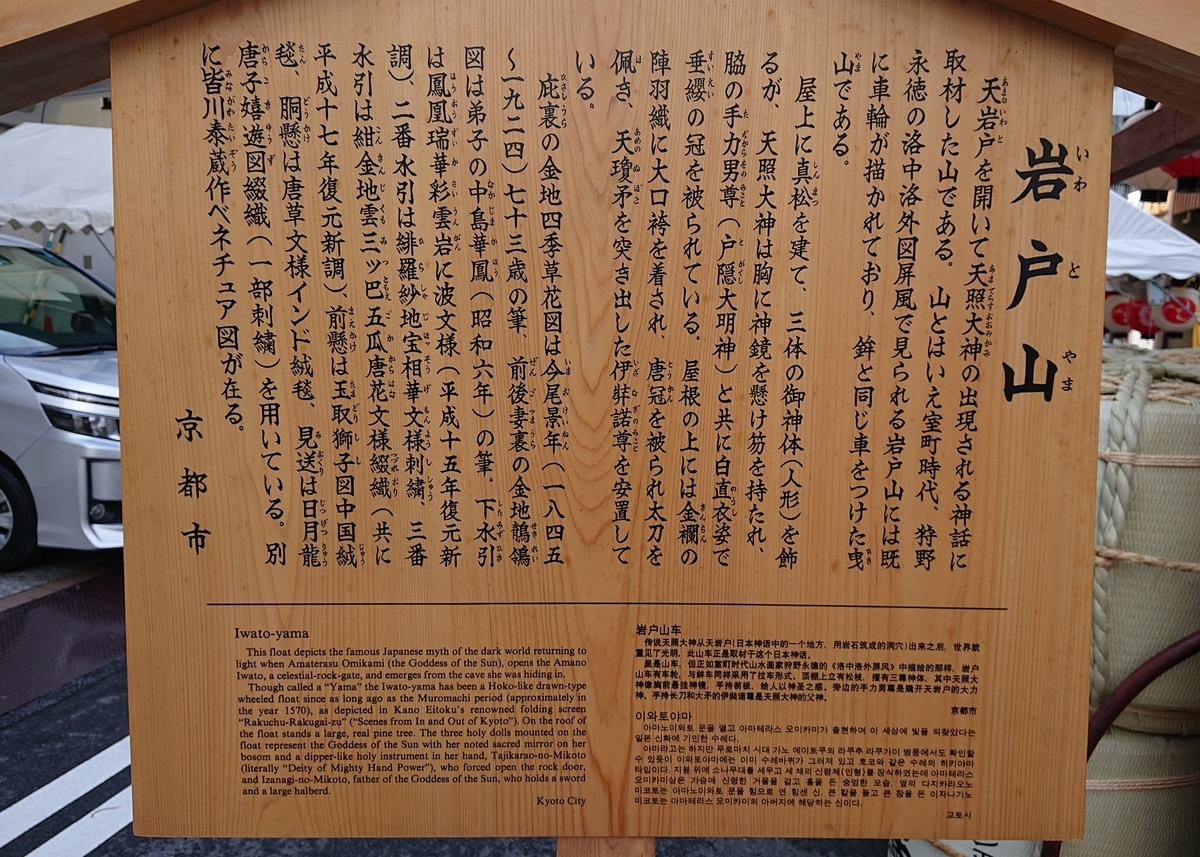 岩戸山
天岩戸を開いて天照大神の出現される神話に
取材した山である。山とはいえ室町時代、狩野
永徳の洛中洛外図屏風で見られる岩戸山には既
に車輪が描かれており、鉾と同じ車をつけた曳
山である。
屋上に真松を建て、三体の御神体（人形）を飾
るが、天照大神は胸に神鏡を懸け笏を持たれ、
脇の手力男尊（戸隠大明神）と共に白直衣姿で
垂纓の冠を被られている。屋根の上には金襴の
陣羽織に大口袴を着され、唐冠を被られ太刀を
佩き、天瓊矛を突き出した伊弉諾尊を安置して
いる。
庇裏の金地四季草花図は今尾景年（一八四五
〜一九二四）七十三歳の筆、前後妻裏の金地鶺鴒
図は弟子の中島華鳳（昭和六年）の筆。下水引
は鳳凰瑞華彩雲岩に波文様（平成十五年復元新
調）、二番水引は緋羅紗地宝相華文様刺繍、三番
水引は紺金地雲三ッ巴五瓜唐花文様綴織（共に
平成十七年復元新調）、前懸は玉取獅子図中国絨
毯、胴懸は唐草文様インド絨毯、見送は日月龍
唐子嬉遊図綴織（一部刺繍）を用いている。別
に皆川泰蔵作ベネチュア図が在る。
京都市
Iwato-yama
This float depicts the famous Japanese myth of the dark world returning to
light when Amaterasu Omikami (the Goddess of the Sun), opens the Amano
Iwato, a celestial-rock-gate, and emerges from the cave she was hiding in.
Though called a “Yama” the Iwato-yama has been a Hoko-like drawn-type
wheeled float since as long ago as the Muromachi period (approximately in
the year 1570), as depicted in Kano Eitoku's renowned folding screen
“Rakuchu-Rakugai-zu” (“Scenes from In and Out of Kyoto”). On the roof of
the float stands a large, real pine tree. The three holy dolls mounted on the
float represent the Goddess of the Sun with her noted sacred mirror on her
bosom and a dipper-like holy instrument in her hand, Tajikarao-no-Mikoto
(literally “Deity of Mighty Hand Power”), who forced open the rock door,
and Izanagi-no-Mikoto, father of the Goddess of the Sun, who holds a sword
and a large halberd.
Kyoto City
岩户山车
传说天照大神从天岩户(日本神话中的一个地方，用岩石筑成的洞穴)出来之后，世界就
重见了光明，此山车正是取材于这个日本神话。
虽是山车，但正如室町时代山水画家狩野永德的《洛中洛外屏风》中描绘的那样，岩户
山车有车轮，与鉾车同样采用了拉车形式。顶棚上立有松枝，摆有三尊神体，其中天照大
神像胸前悬挂神镜，手持笏板，给人以神圣之感。旁边的手力男尊是撬开天岩户的大力
神，手持长刀和大矛的伊奘诺尊是天照大神的父神。
京都市
이와토야마
아마노이와토 문을 열고 아마테라스 오미카미가 출현하여 이 세상에 빛을 되찾았다는
일본 신화에 기인한 수레다.
야마라고는 하지만 무로마치 시대 가노 에이토쿠의 라쿠추 라쿠가이 병풍에서도 확인할
수 있듯이 이와토야마에는 이미 수레바퀴가 그려져 있고 호코와 같은 수레의 히키야마
타입이다. 지붕 위에 소나무대를 세우고 세 채의 신령체(인형)를 장식하였는데 아마테라스
오미카미상은 가슴에 신령한 거울을 걸고 홀을 든 숭엄한 모습, 옆의 다지카라오노
미코토는 아마노이와토 문을 힘으로 연 힘센 신, 큰 칼을 들고 큰 창을 든 이자나기노
미코토는 아마테라스 오미카미의 아버지에 해당하는 신이다.
교토시